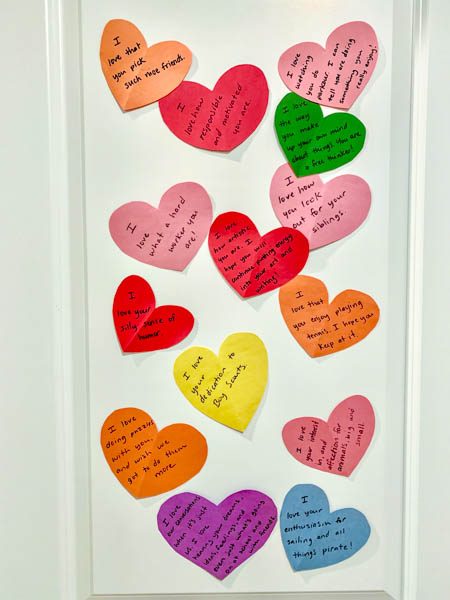 I
love that
you pick
such nice friends.
I love
watching
you do
parkour. I can
tell you are doing
something you
really enjoy!
I
love how
responsible
and motivated
you are.
I love
the way
you make
up your own mind
about things. You are
a free thinker!
I
love
what a hard
worker you
are!
I
love how
you look
out for your
siblings.
I love
how artistic
you are. I
hope you will
continue pushing energy
into your art and
writing!
I
love your
silly sense of
humour.
I
love that
you enjoy playing
tennis. I hope you
keep at it.
I love
your
dedication to
Boy Scouts.
I love
doing puzzles
with you,
and wish we
got to do them
more
I love
your interest
in, and
affection for
animals, big and
small.
I love
our conversations
when it's just
us. I love
hearing your dreams,
ideas, feelings and
even just what's going
on at school and
with friends.
I
love your
enthusiasm for
sailing and all
things pirate!